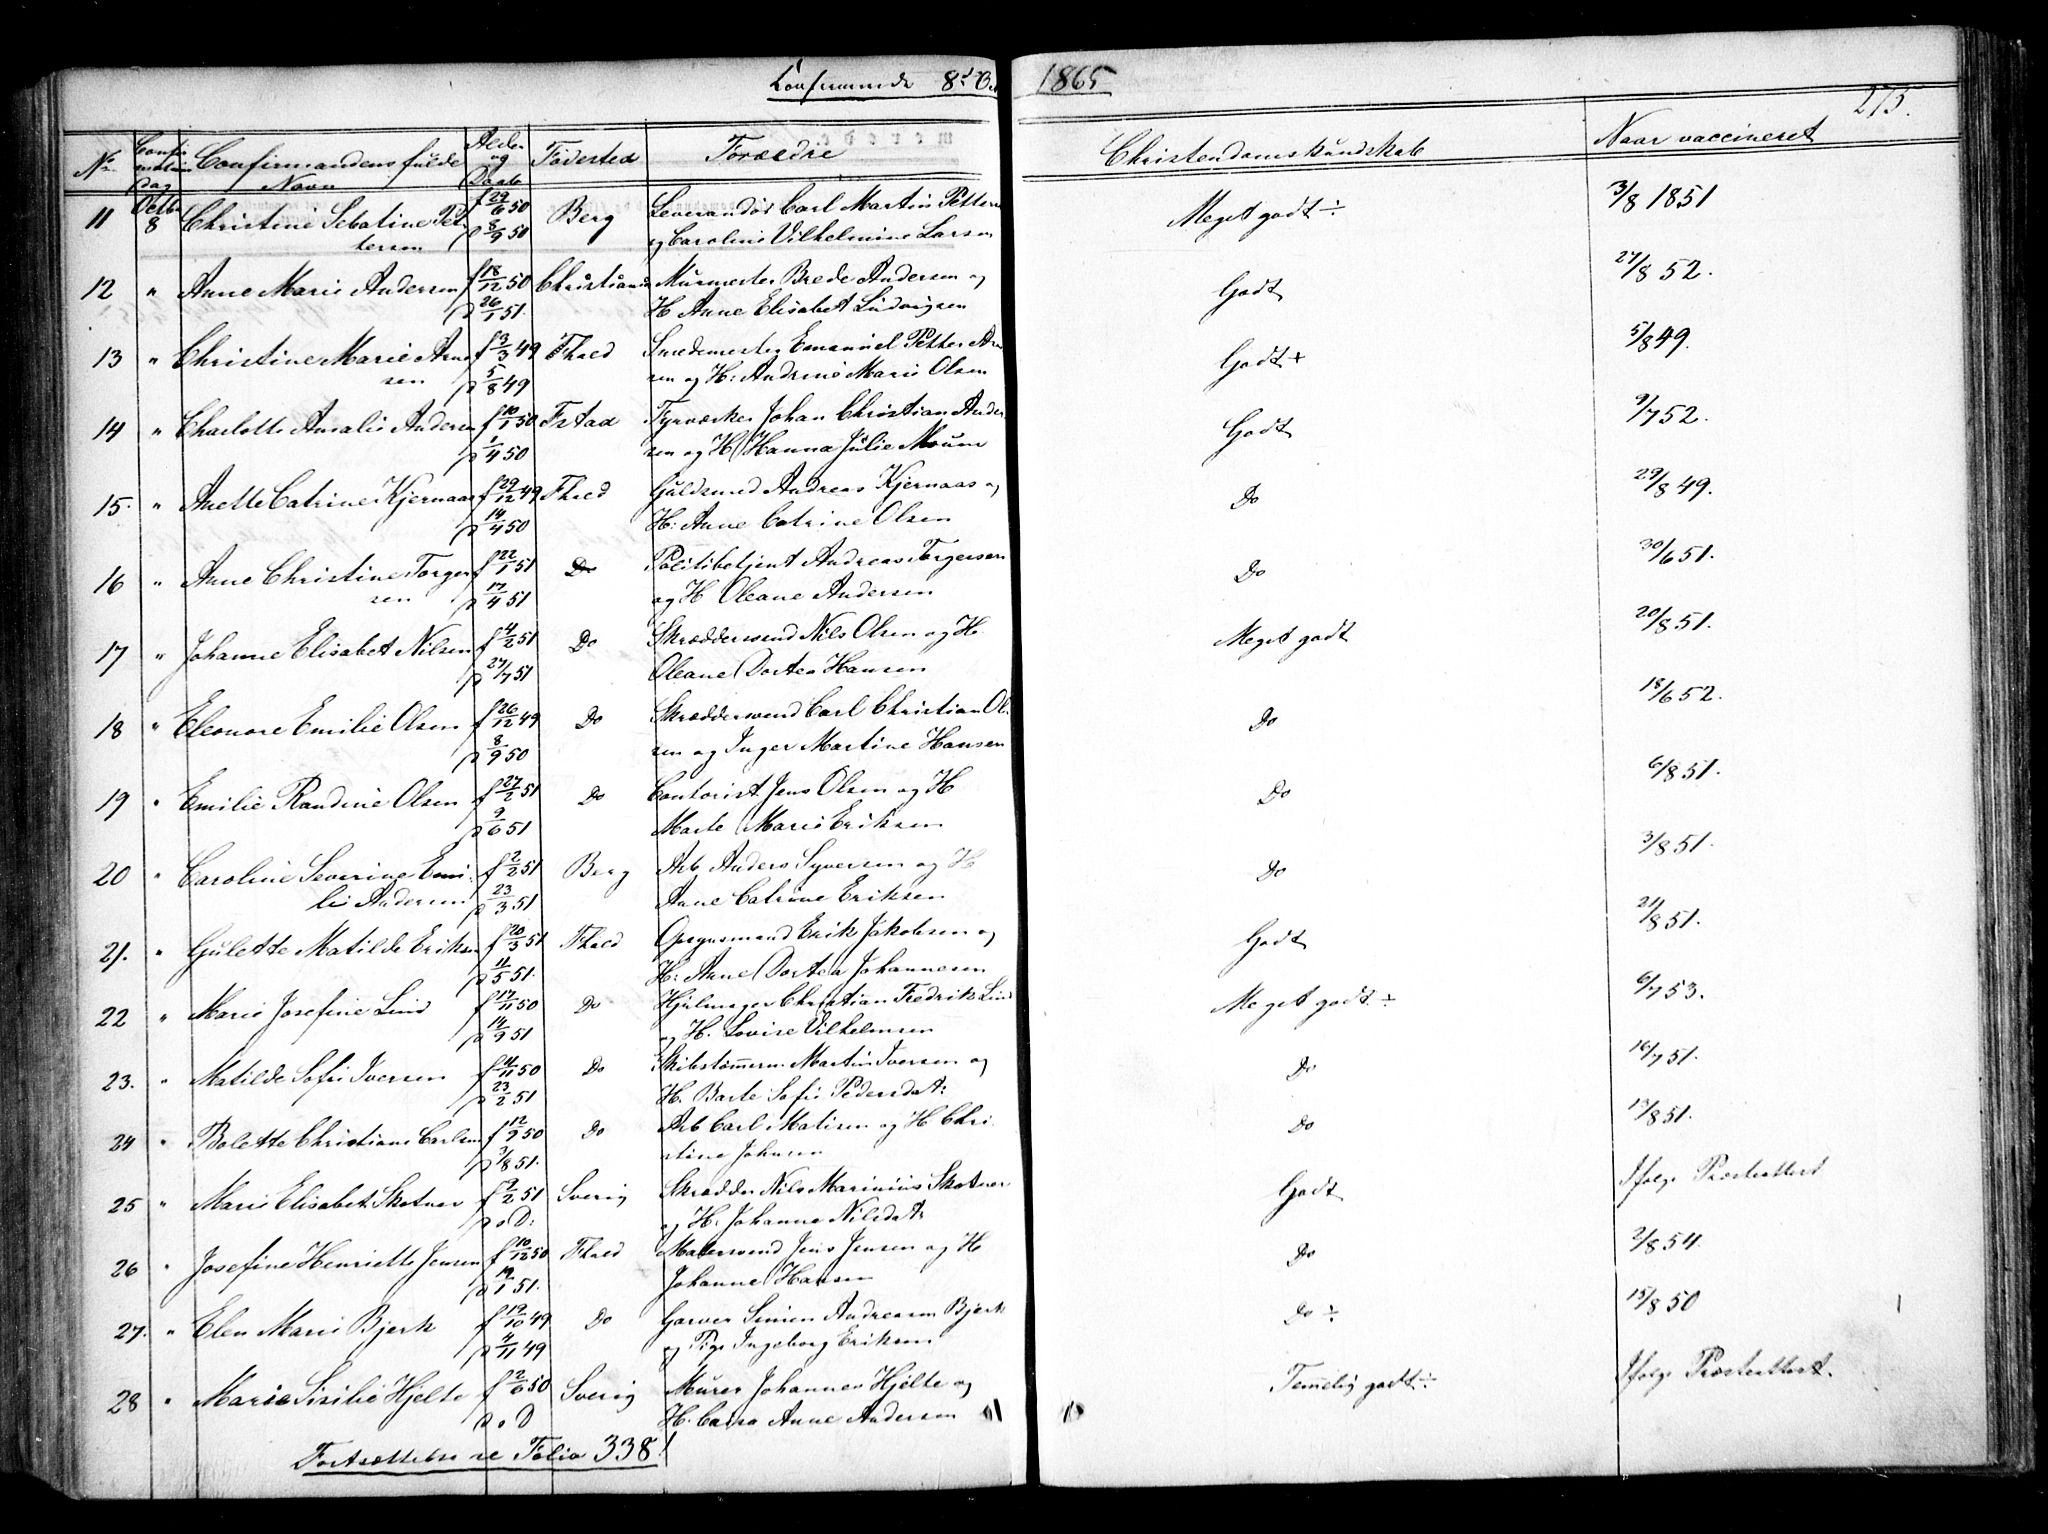 Confirmerede 8d Oc
1865
275.
No
Confirmationsdag
Confirmandens fulde Navn
Alder og Daab
Fødested
Forældre
Christendomskundskab
Naar vaccineret
11 Octbr 8 Christine Sebatine Pet f 29/6 50 Berg Leverandør Carl Martin Petters Meget godt ÷ 3/8 1851
tersen d 8/9 51 og Caroline Vilhelmine Larsen
12 " Anne Marie Andersen f 18/12 50 Christiania Murmester Brede Andersen og Godt 27/8 52.
d 26/1 51. H Anne Elisabet Ludvigsen
13 " Christine Marie Arne f 3/3 49 Fhald Smedemester Emanuel Petter Arn Godt + 5/8 49.
sen d 5/8 49 sen og H: Andrine Marie Olsen
14 " Charlotte Amalie Andersen f 10/1 50 Fstad Fyrvæsker Johan Christian Ander Godt 9/7 52.
d 1/4 50 sen og H Hanna Julie Moum
15. " Anette Catrine Kjernaas f 29/12 49 Fhald Guldsmed Andreas Kjernaas og Do 29/8 49.
d 14/4 50 H: Anne Catrine Olsen
16 " Anne Christine Torger f 22/1 51 Do Politibetjent Andreas Torgersen Do 30/6 51.
sen d 17/4 51 og H Oleane Andersen
17 " Johanne Elisabet Nilsen f 4/2 51 Do Skræddersvend Nils Olsen og H. Meget godt 20/8 51.
d 27/7 51 Oleane Dortea Hansen
18 " Eleonore Emilie Olsen f 26/12 49 Do Skræddersvend Carl Christian Ol Do 18/6 52.
d 8/9 50 sen og Inger Martine Hansen
19 " Emilie Randine Olsen f 27/2 51 Do Contorist Jens Olsen og H Do 6/8 51.
d 9/6 51 Marte Marie Eriksen
20 " Caroline Severine Emi f 2/2 51 Berg Arb Anders Syversen og H Do 3/8 51.
lie Andersen d 23/3 51 Anne Catrine Eriksen
21. " Gulette Matilde Eriksen f 20/3 51 Fhald Opsynsmand Erik Jakobsen og Godt 21/8 51.
d 11/5 51. H: Anne Dortea Johannesen
22 " Marie Josefine Lind f 17/11 50 Do Hjulmager Christian Fredrik Lind Meget godt ÷ 6/7 53.
d 14/9 51 og H. Lovise Vilhelmsen
23. " Matilde Sofie Iversen f 14/11 50 Do Skibstømmerm Martin Iversen og Do 16/7 51.
d 23/2 51 H. Barte Sofie Pedersdat:
24 " Bolette Christiane Carlsen f 12/9 50 Do Arb Carl Matisen og H Chri Do 13/8 51.
d 3/8 51. stine Johnsen
25 " Marie Elisabet Skotner f 9/2 51 Sverig Skrædder Nils Marinius Skotner Godt Ifølge Præsteattest
d o D: og H. Johanna Nilsdat:
26 " Josefine Henriette Jensen f 10/12 50 Fhald Malersvend Jens Jensen og H Do 2/8 54.
d 19/1 51. Johanne Hansen
27. " Elen Marie Bjerk f 19/10 49 Do Garver Simen Andreasen Bjerk Do ÷ 15/8 50
d 4/11 49 og Pige Ingeborg Eriksen
28 " Marie Sisilie Hjelte f 2/6 50 Sverig Murer Johannes Hjelte og Temmelig godt ÷ Ifølge Præsteattest.
d o D H. Caisa Anne Andersen
Fortsættelse se Folio 338!